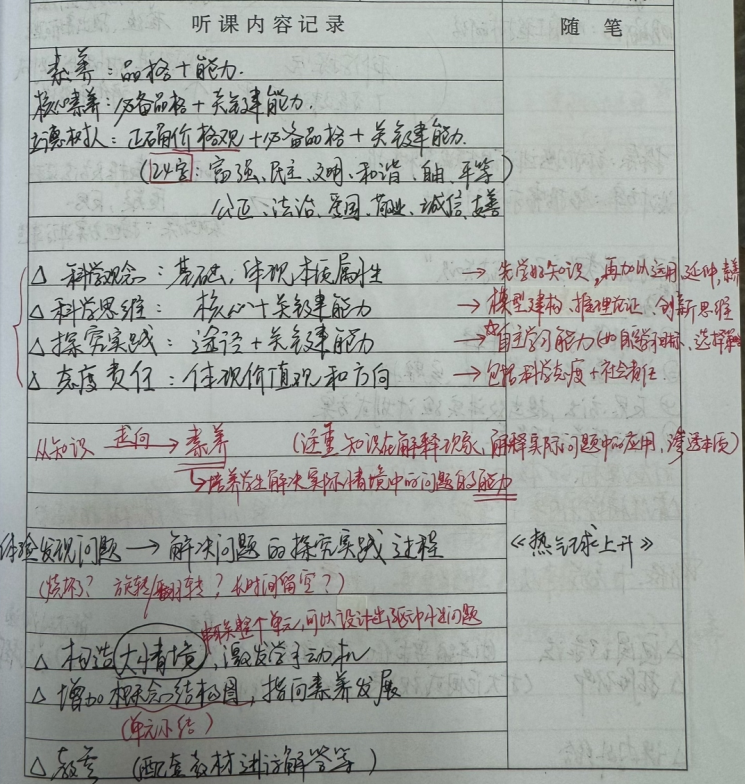 听课内容记录 随笔
素养：品格+能力.
核心素养：必备品格+关键能力.
立德树人：正确价格观+必备品格+关键能力.
(24字：富强、民主、文明、和谐、自由、平等)
公正、法治、爱国、敬业、诚信、友善
△ 科学观念：基础，体现本质属性 → 先学的知识，再加以运用、延伸，
△ 科学思维：核心+关键能力 → 模型建构、推理论证、创新思维
△ 探究实践：途径+关键能力 → 自主学习能力(如自学目标、选择
△ 态度责任：体现价值观和方向 → 包括科学态度+社会责任.
从知识 走向→ 素养 (注重知识在解释现象、解释实际问题中的应用，渗透本质)
↳培养学生解决实际情境中的问题的能力
体验发现问题 → 解决问题的探究实践过程 《热气球上升》
(烧坏？旋转/翻转？长时间留空？)
串联整个单元，可以设计出驱动性问题
△ 构造大情境，激发学习动机
△ 增加概念结构图，指向素养发展
(单元小结)
△ (配套教材进行解答等)